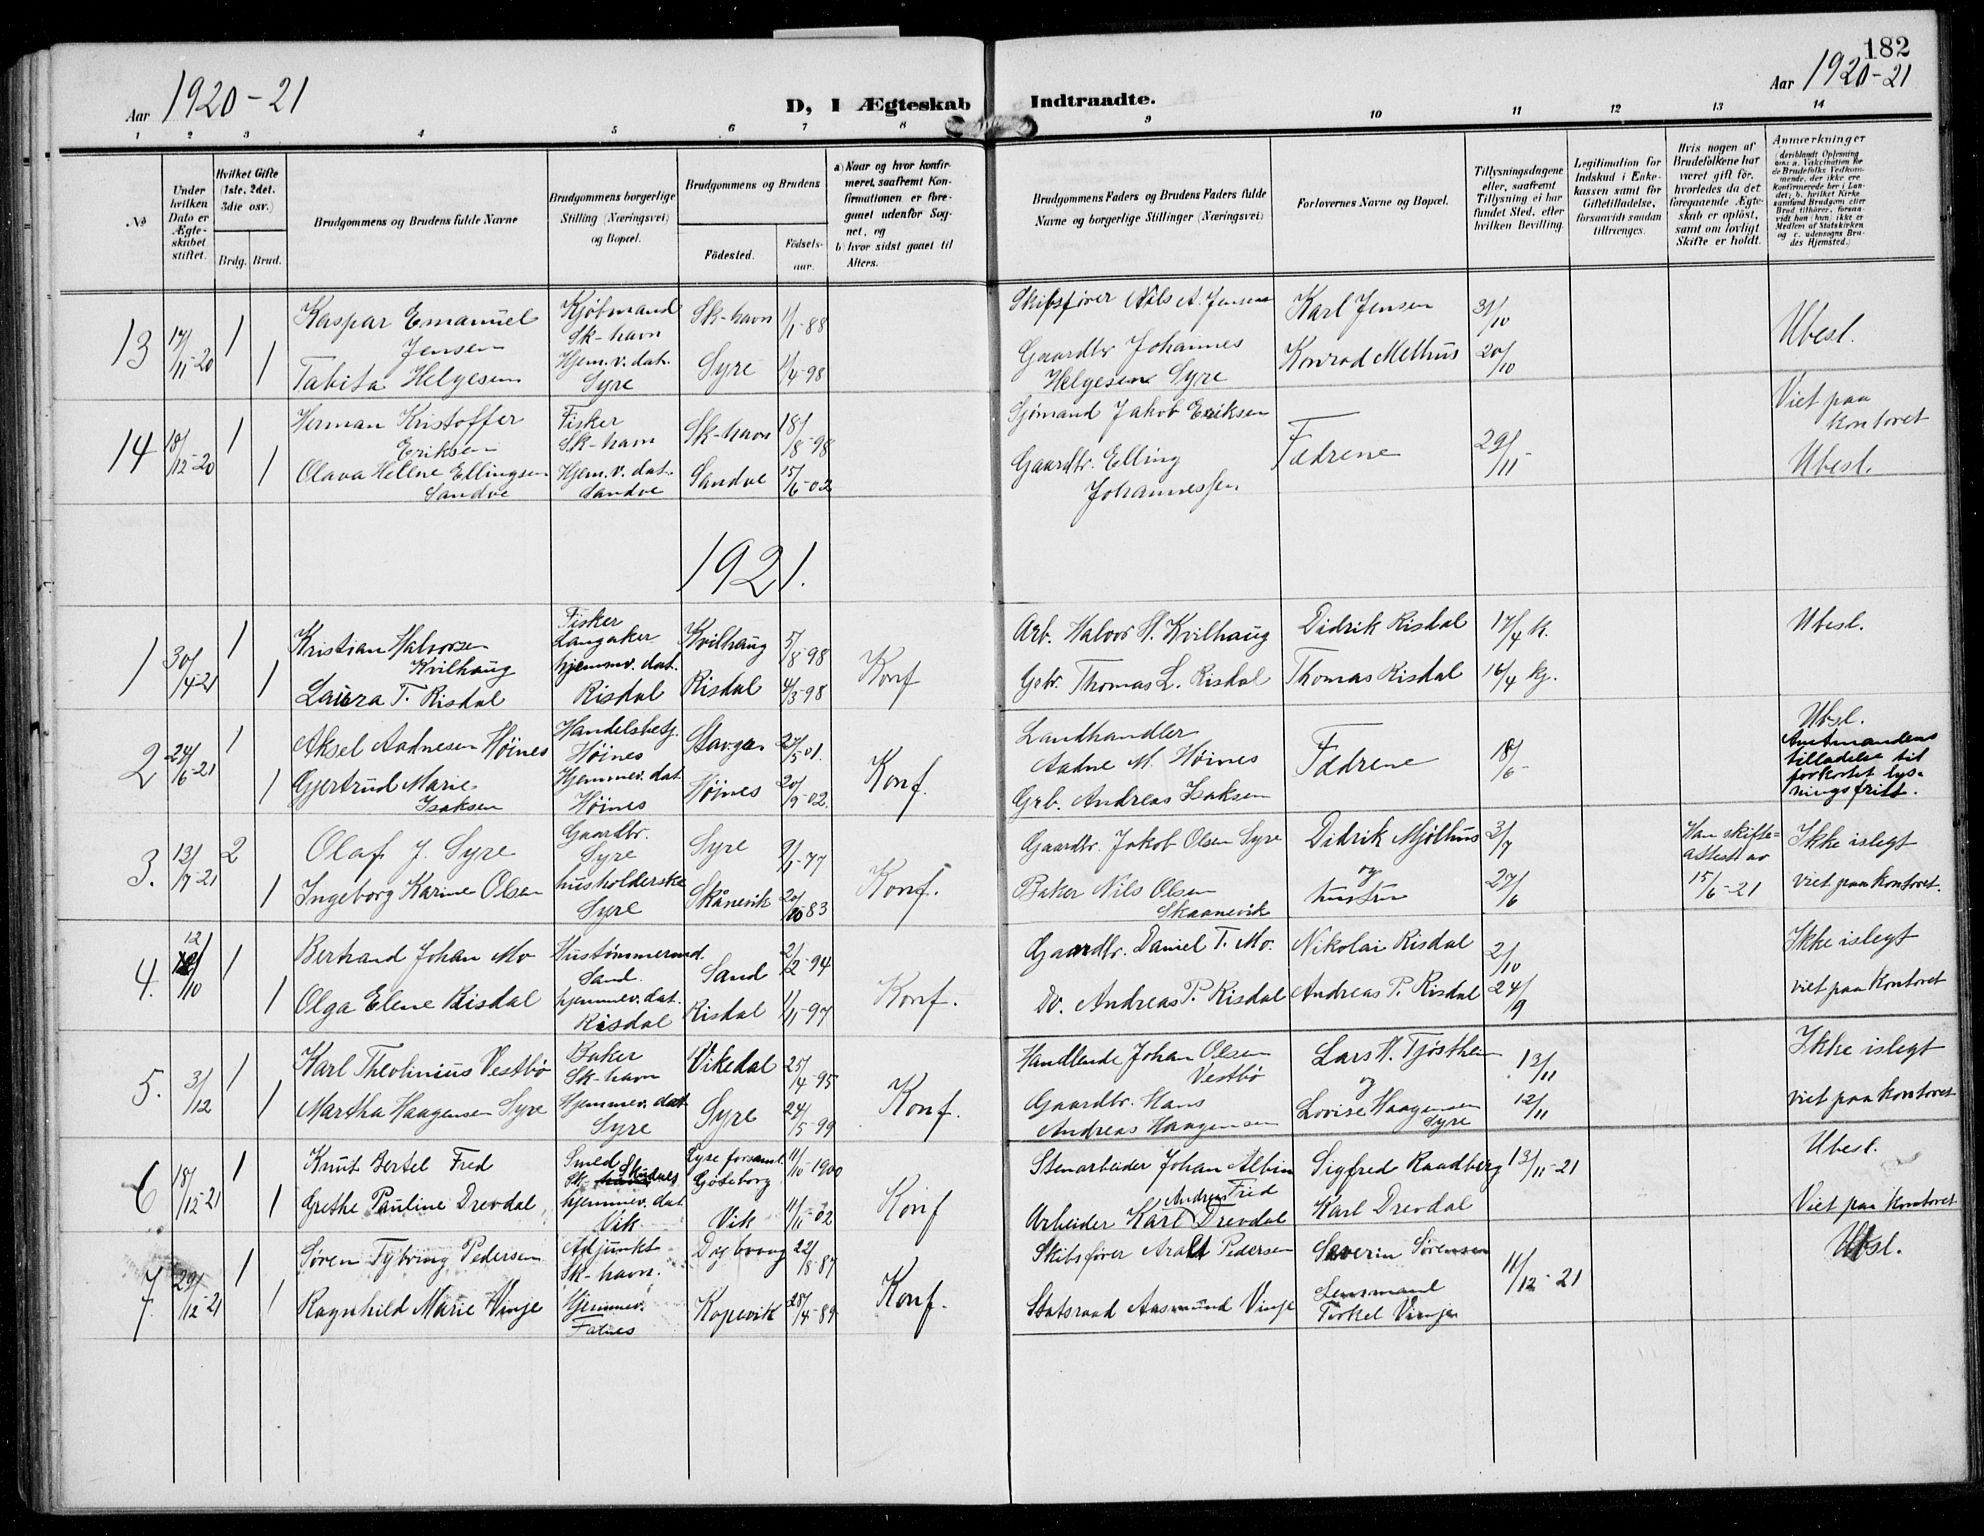 182
Aar 1920-21
D, I Ægteskab Indtraadte.
Aar 1920-21
1 2 3 4 5 6 7 8 9 10 11 12 13 14
№
Under hvilken Dato er Ægteskabet stiftet.
Hvilket Gifte (1ste, 2det, 3die osv.)
Brdg. Brud.
Brudgommens og Brudens fulde Navne
Brudgommens borgerlige Stilling (Næringsvei) og Bopæl.
Brudgommens og Brudens
Födested.
Födselsaar.
a) Naar og hvor konfirmeret, saafremt Konfirmationen er foregaaet udenfor Sognet, og
b) hvor sidst gaaet til Alters.
Brudgommens Faders og Brudens Faders fulde Navne og borgerlige Stillinger (Næringsvei)
Forlovernes Navne og Bopæl.
Tillysningsdagene eller, saafremt Tillysning ei har fundet Sted, efter hvilken Bevilling.
Legitimation for Indskud i Enkekassen samt for Giftetilladelse, forsaavidt saadan tiltrænges.
Hvis nogen af Brudefolkene har været gift för, hvorledes da det foregaaende Ægteskab er oplöst, samt om lovligt Skifte er holdt.
Anmærkninger
(deriblandt Oplysning om: a. Vakcination for de Brudefolks Vedkommende, der ikke ere konfirmerede her i Landet; b. hvilket Kirkesamfund Brudgom eller Brud tilhörer, forsaavidt han (hun) ikke er Medlem af Statskirken og c. udensogns Brudes Hjemsted.)
13 17/11-20 1 Kaspar Emanuel Jensen Kjøbmand Sk-havn Sk-havn 1/1-88 Skibsfører Nils A. Jensen Karl Jensen 31/10 Ubesl.
1 Tabita Helgesen Hjem.v. dat. Syre Syre 1/4-98 Gaardbr Johannes Helgesen Syre Konrad Melhus 20/10
14 18/12-20 1 Herman Kristoffer Eriksen Fisker Sk-havn Sk-havn 18/8-98 Sjømand Jakob Eriksen Fædrene 29/11 Viet paa kontoret
1 Olava Helene Ellingsen Sandve Hjem.v. dat. Sandve Sandve 15/6-02 Gaardbr. Elling Johannessen Ubesl.
1921.
1 30/4-21 1 Kristian Halvorsen Kvilhaug Fisker Langaker Kvilhaug 5/8-98 Konf Arb. Halvor H. Kvilhaug Didrik Risdal 17/4 k. Ubesl.
1 Laura T. Risdal hjemmv. dat. Risdal Risdal 4/3-98 Gbr. Thomas L. Risdal Thomas Risdal 16/4 kg.
2 24/6-21 1 Aksel Aadnesen Høines Handelsbetj. Høines Stavger 27/5-01. Konf. Landhandler Aadne M. Høines Fædrene 18/6 Ubesl.
1 Gjertrud Marie Isaksen Hjemmev. dat Høines Høines 20/9-02. Grb. Andreas Isaksen Amtmandens tilladelse til forkortet lysningsfrist.
3. 13/7-21 2 Olaf J. Syre Gaardbr. Syre Syre 9/1-77 Konf. Gaardbr. Jakob Olsen Syre Didrik Mjølhus 3/7 Han skifteattest av 15/6-21 Ikke islegt
1 Ingeborg Karine Olsen husholderske Syre Skånevik 20/10 83 Baker Nils Olsen Skaanevik og hustru 27/6 viet paa kontoret.
4. 12/10 1 Bertrand Johan Mo Hustømmermd. Sand. Sand 2/2-94 Konf. Gaardbr. Daniel T. Mo. Nikolai Risdal 2/10 Ikke islegt
1 Olga Elene Risdal hjemmev. dat. Risdal Risdal 1/11-97 Do. Andreas P. Risdal Andreas P. Risdal 24/9 viet paa kontoret
5. 3/12 1 Karl Theolinius Vestbø Baker Sk-havn Vikedal 25/4-95 Konf. Handlende Johan Olsen Vestbø Lars H. Tjøsthem og 13/11 Ikke islegt
1 Martha Haagensen Syre Hjemmev. dat Syre Syre 24/5-99 Gaardbr. Hans Andreas Haagensen Lovise Haagensen Syre 12/11 viet paa kontoret
6 18/12-21 1 Knut Bertel Fred Smed Sk- Skudnes Lyse forsaml. Göteborg 11/10-1900 Konf Stenarbeider Johan Albin Fred Sigfred Raadberg 13/11-21 Ubesl.
1 Grethe Pauline Drevdal hjemmev. dat Vik Vik 11/11-02 Arbeider Karl Andreas Drevdal Karl Drevdal Viet paa kontoret
7. 29/12-21 1 Søren Tybring Pedersen Adjunkt Sk-havn. 22/8-87 Konf. Skibsfører Aralt Pedersen Severin Sørensen 11/12-21 Ubsl.
1 Ragnhild Marie Vinje Hjemmev. Falnes Kopevik 28/4-89 Statsraad Aasmund Vinje Lensmand Torkel Vinje